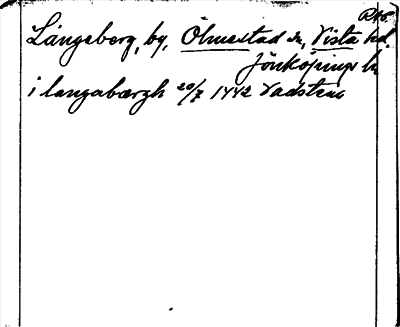 RAÖ.
Långeberg, by, Ölmestad sn, Vista hd.
Jönköpings l.
i langabærgh 20/7 1442 Vadstena